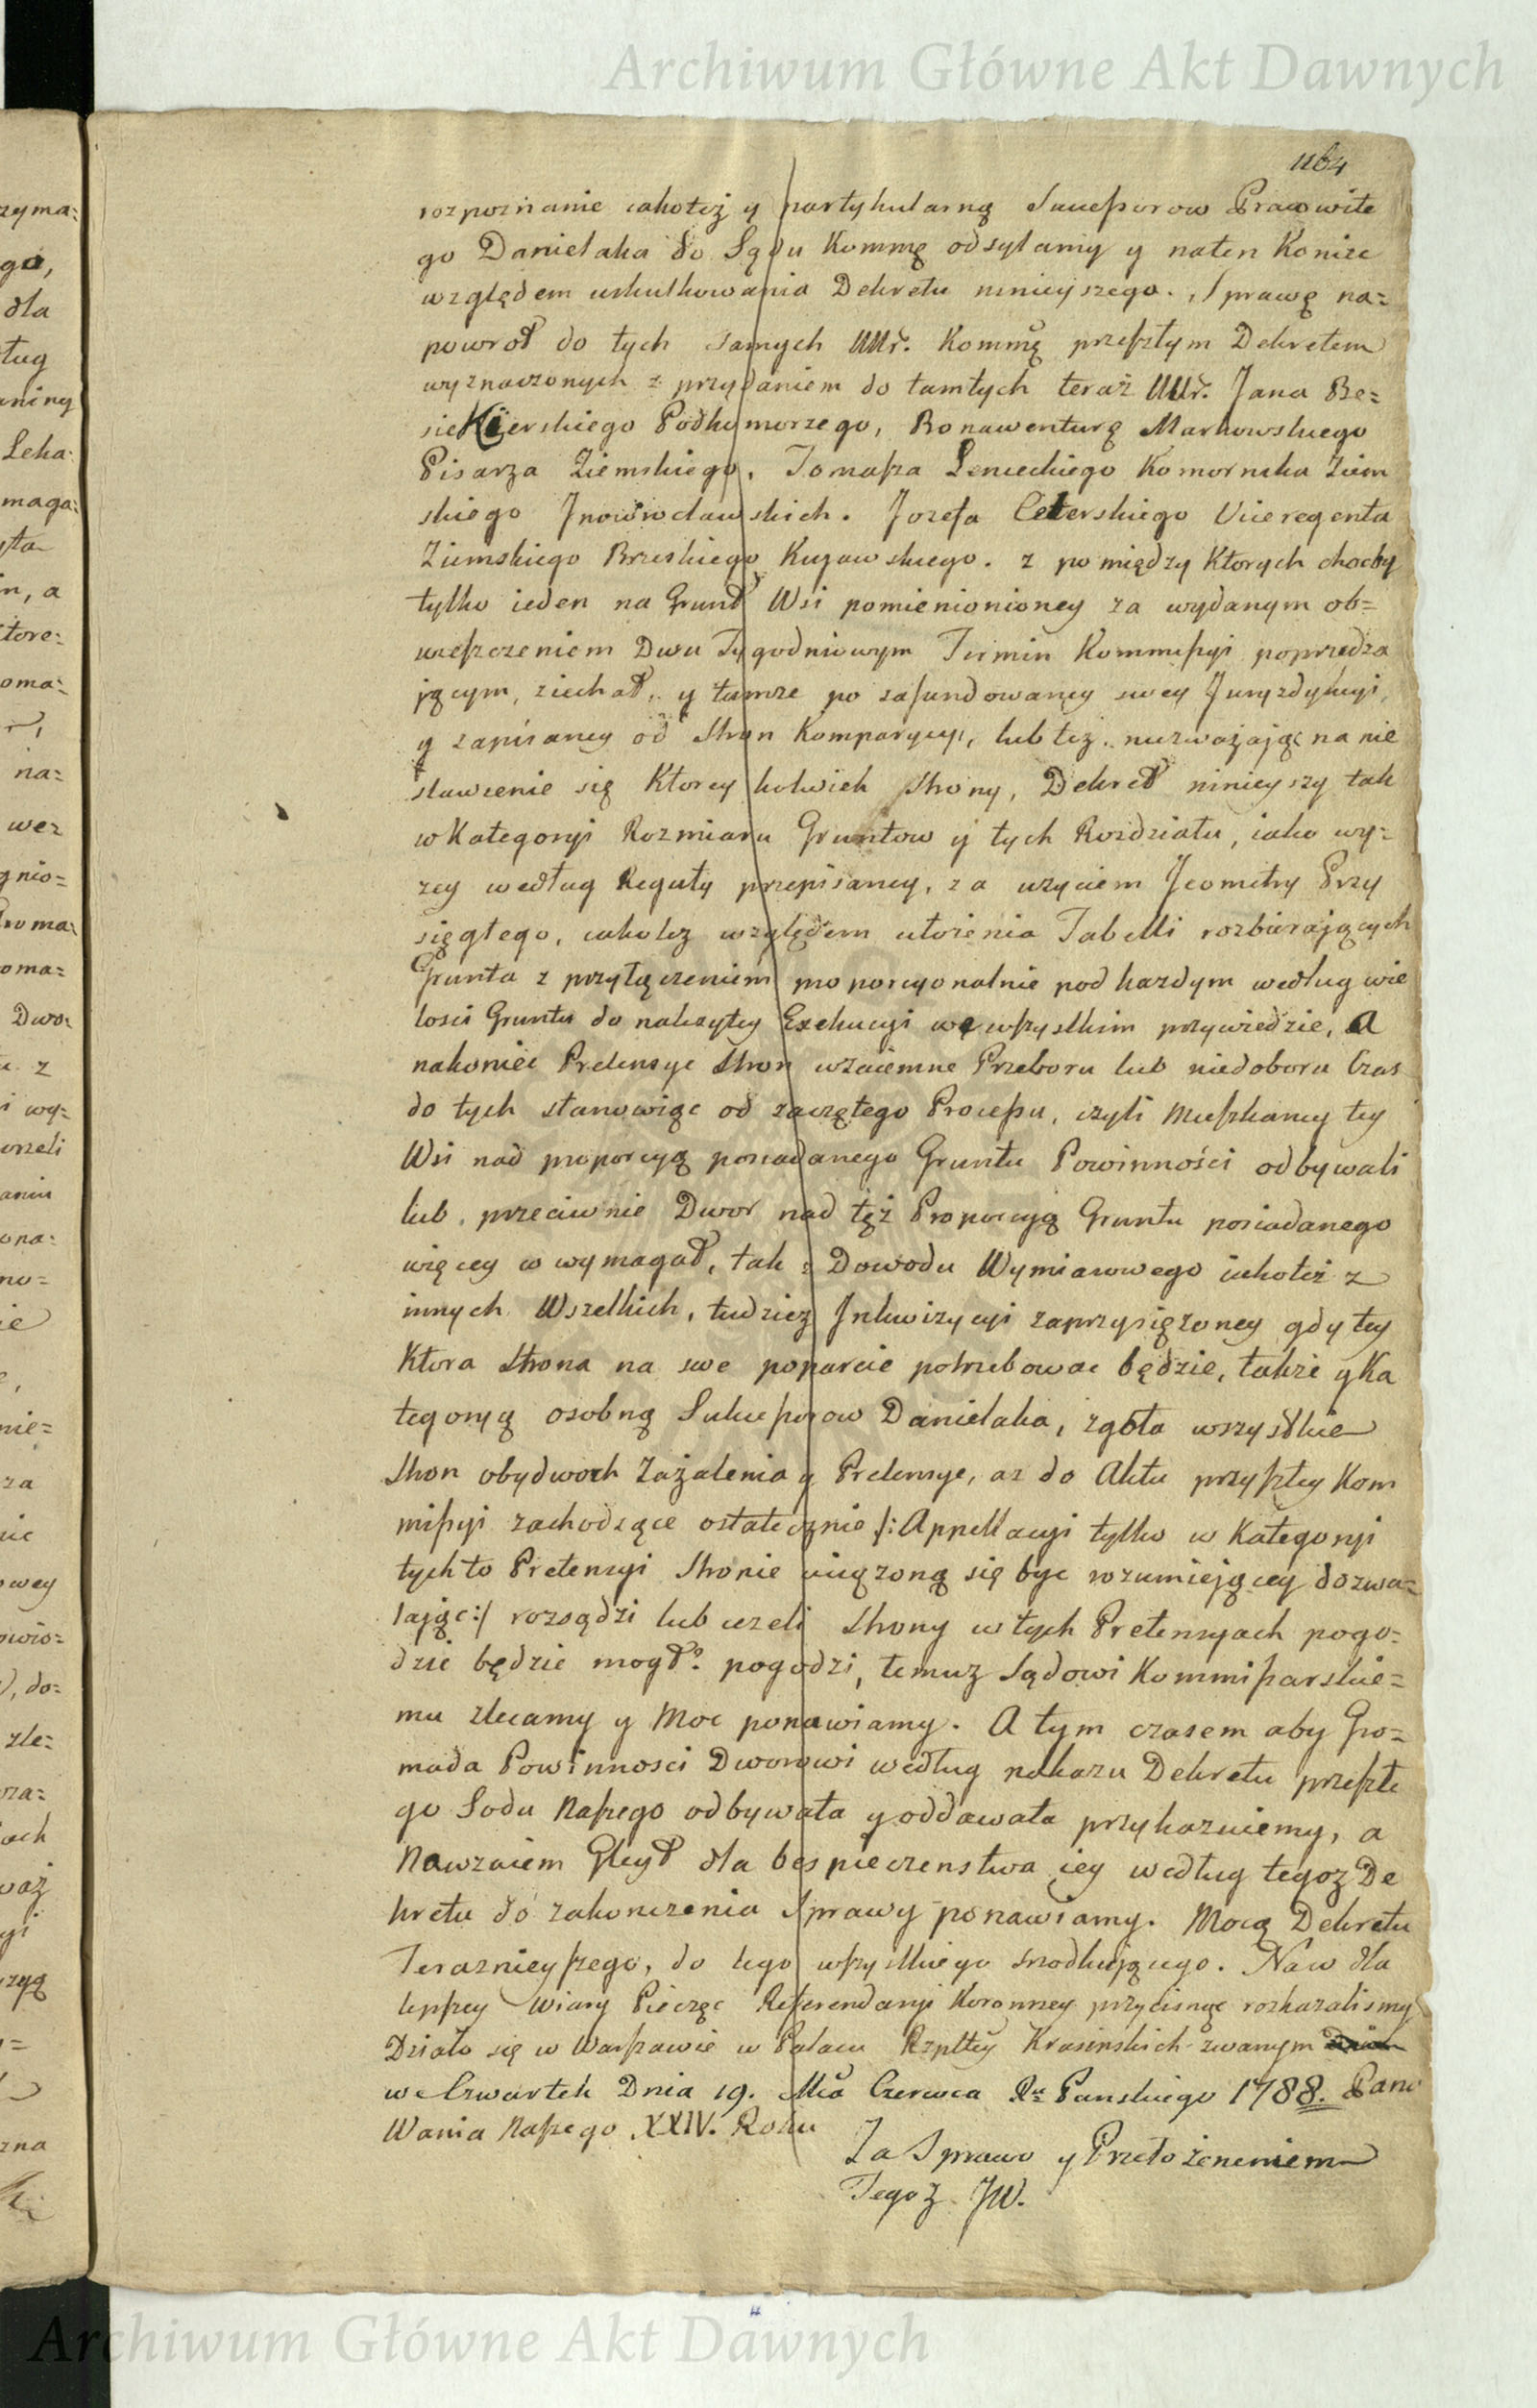 Archiwum Główne Akt Dawnych
1164
rozpoznanie iakoteż y partykularną Sukceßorow Pracowite
go Danielaka do Sądu Kommę odsyłamy y naten Koniec
względem uskutkowania Dekretu ninieyszego. Sprawę na=
powrot do tych samych UUr. Kommę przeßłym Dekretem
wyznaczonych z przydaniem do tamtych teraz UUr. Jana Be=
siekierskiego Podkomorzego, Bonawenturę Markowskiego
Pisarza Ziemskiego, Tomaßa Leniedkiego Komornika Ziem
skiego Jnowrocławskich. Jozefa Ceterskiego Viceregenta
Ziemskiego Brzeskiego Kujawskiego. z pomiędzy Ktorych choćby
tylko ieden na Grunt Wsi pomienioioney za wydanym ob=
wießczeniem Dwu Tygodniowym Termin Kommißyi poprzedza
jącym, ziechał, y tamze po zafundowaney swey Juryzdykcyi,
y zapisaney od Stron Komparycyi, lub też nieuważając na nie
stawienie się Ktorey kolwiek Strony, Dekret ninieyszy tak
w Kategoryi Rozmiaru Gruntow y tych Rozdziału, iako wy=
zey według Reguły przepisaney, za uzyciem Jeomitry Przy
sięgłego, iakotez względem ułożenia Tabelli rozbierających
Grunta z przyłączeniem proporcyonalnie pod kazdym według wie
losci Gruntu do należytey Exekucyi we wßystkim przywiedzie, A
nakoniec Pretensye Stron wzaiemne Przeboru lub niedoboru Czas
do tych stanowiąc od zaczętego Proceßu, czyli Mießkancy tey
Wsi nad proporcyą posiadanego Gruntu Powinności odbywali
lub, przeciwnie Dwor nad tęż Proporcyą Gruntu posiadanego
więcey co wymagał, tak z Dowodu Wymiarowego iakoteż z
innych Wszelkich, tudziez Jnkwizycyi zaprzysięzoney gdy tey
Ktora Strona na swe poparcie potrzebowac będzie, także y Ka
tegoryą osobną Sukceßorow Danielaka, zgoła wszystkie
Stron obydwoch Zażalenia y Pretensye, az do Aktu przyßłey Kom
mißyi zachodzące ostatecznie /:Appellacyi tylko w Kategoryi
tychto Pretensyi Stronie uciązoną się byc rozumiejącey dozwa=
lając:/ rozsądzi lub iezeli Strony w tych Pretensyach pogo=
dzic będzie mogł? pogodzi, temuz Sądowi Kommißarskie=
mu zlecamy y Moc ponawiamy. A tym czasem aby Gro=
mada Powinnosci Dworowi według nakazu Dekretu przeßłe
go Sodu Naßego odbywała y oddawała przykazuiemy, a
Nawzaiem Gleyt dla bespieczenstwa iey według tegoz De
kretu do zakonczenia Sprawy ponawiamy. Mocą Dekretu
Teraznieyßego, do tego wßystkiego srodkującego. Naw dla
lepßey Wiary Pieczęc Referendaryi Koronney przycisnąc rozkazalismy
Działo się w Warßawie w Pałacu Rzpltey Krasinskich zwanym
we Czwartek Dnia 19. Mca Czerwca Ru Panskiego 1788. Pano
Wania Naßego XXIV. Roku
Za Sprawo y Przełożeneniem
Tegoz JW.
Archiwum Główne Akt Dawnych